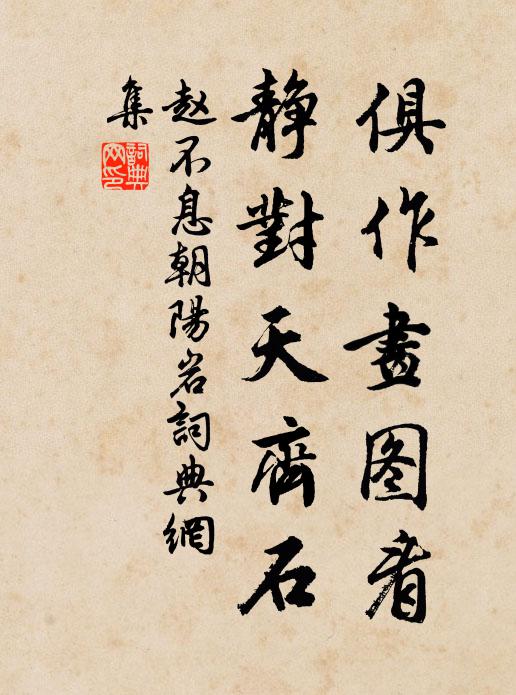 俱作畫图看
靜對天齊石
赵不息朝陽岩詞典網
集
詞典
网印